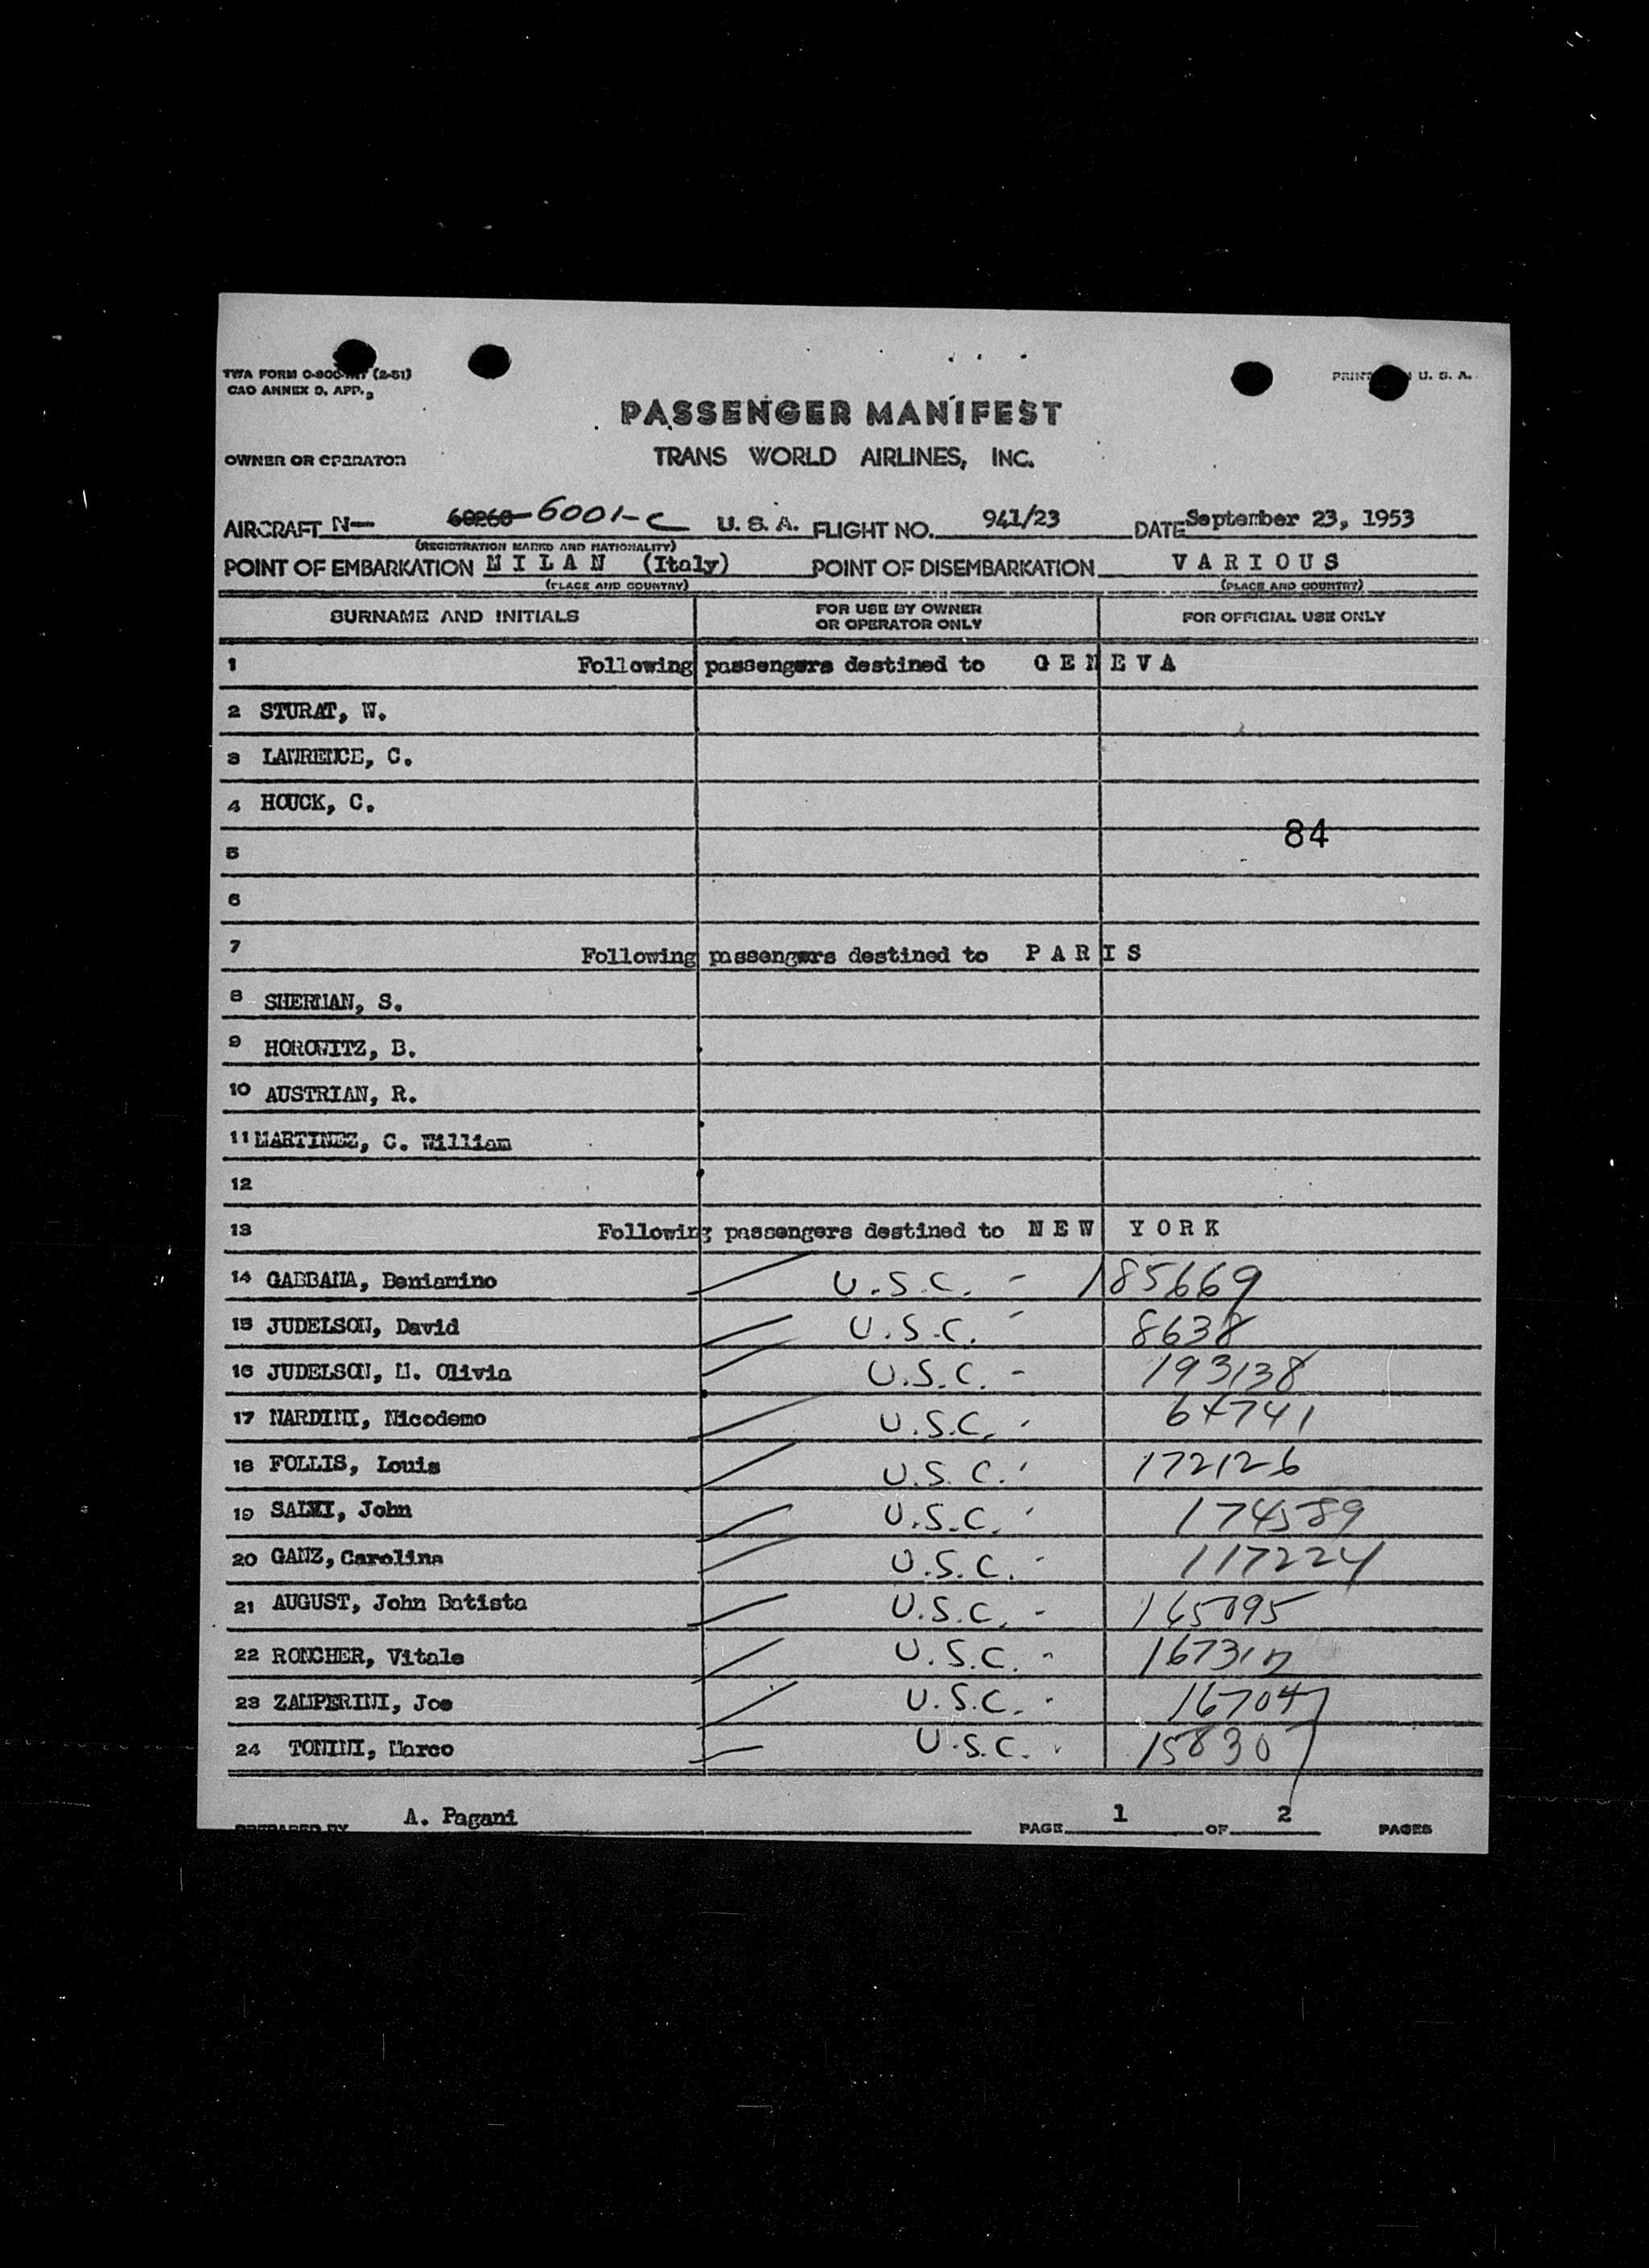 TWA FORM O-800-INT (2-51)
CAO ANNEX D. APP.
U. S. A.
PASSENGER MANIFEST
OWNER OR OPERATOR
TRANS WORLD AIRLINES, INC.
AIRCRAFT N— 60260 6001-C U. S. A. FLIGHT NO. 941/23 DATE September 23, 1953
(REGISTRATION MARKS AND NATIONALITY)
POINT OF EMBARKATION M I L A N (Italy) POINT OF DISEMBARKATION V A R I O U S
(PLACE AND COUNTRY) (PLACE AND COUNTRY)
SURNAME AND INITIALS FOR USE BY OWNER OR OPERATOR ONLY FOR OFFICIAL USE ONLY
1 Following passengers destined to G E N E V A
2 STURAT, W.
3 LAURENCE, C.
4 HOUCK, C.
84
5
6
7 Following passengers destined to P A R I S
8 SHERMAN, S.
9 HOROWITZ, B.
10 AUSTRIAN, R.
11 MARTINEZ, C. William
12
13 Following passengers destined to N E W Y O R K
14 GABBANA, Beniamino U.S.C. - 185669
15 JUDELSON, David U.S.C. - 8638
16 JUDELSON, M. Olivia U.S.C. - 193138
17 NARDINI, Nicodemo U.S.C. - 64741
18 FOLLIS, Louis U.S.C. - 172126
19 SALVI, John U.S.C. - 174589
20 GANZ, Carolina U.S.C. - 117224
21 AUGUST, John Batista U.S.C. - 165095
22 RONCHER, Vitale U.S.C. -
23 ZAMPERINI, Joe U.S.C. - 16704
24 TONINI, Marco U.S.C. - 15830
PREPARED BY A. Pagani PAGE 1 OF 2 PAGES